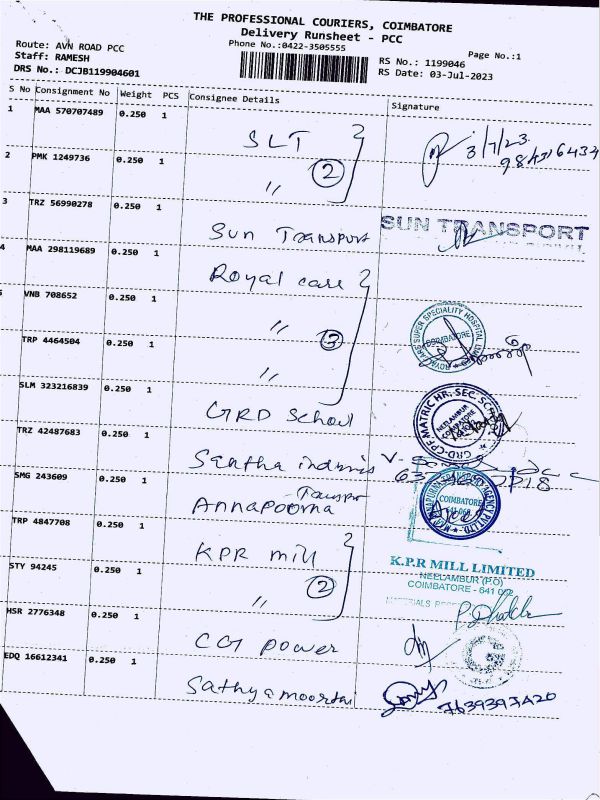 THE PROFESSIONAL COURIERS, COIMBATORE
Delivery Runsheet - PCC
Phone No.:0422-3505555
Page No.:1
Route: AVN ROAD PCC
Staff: RAMESH
DRS No.: DCJB119904601
RS No.: 1199046
RS Date: 03-Jul-2023
S No Consignment No Weight PCS Consignee Details Signature
1 MAA 570707489 0.250 1 SLT 3/7/23.
2 PMK 1249736 0.250 1 〃 2
3 TRZ 56990278 0.250 1 Sun Transport SUN TRANSPORT
4 MAA 298119689 0.250 1 Royal care
VNB 708652 0.250 1 〃 3 ROYAL CARE SUPER SPECIALITY HOSPITAL COIMBATORE
TRP 4464504 0.250 1 〃
SLM 323216839 0.250 1 GRD School GRD-CPF MATRIC HR. SEC. SCHOOL NEELAMBUR COIMBATORE
TRZ 42487683 0.250 1 Santha
SMG 243609 0.250 1 Annapoorna Transport COIMBATORE
TRP 4847708 0.250 1 KPR mill K.P.R MILL LIMITED
NEELAMBUR (P.O)
STY 94245 0.250 1 〃 2 COIMBATORE - 641 062
MATERIALS
HSR 2776348 0.250 1 CG power
EDQ 16612341 0.250 1 Sathyamoorthi